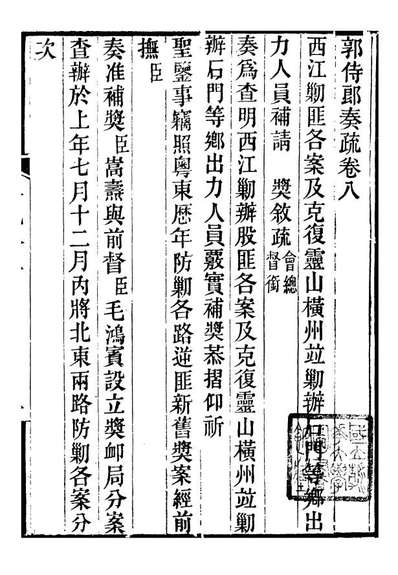 郭侍郎奏疏卷八
西江勦匪各案及克復靈山橫州竝勦辦石門等鄉出
力人員補請 獎敘疏會總督銜
奏爲查明西江勦辦股匪各案及克復靈山橫州竝勦
辦石門等鄉出力人員覈實補獎恭摺仰祈
聖鑒事竊照粵東歷年防勦各路逆匪新舊獎案經前
撫臣
奏准補獎臣嵩燾與前督臣毛鴻賓設立獎卹局分案
查辦於上年七月十二月內將北東兩路防勦各案分
次